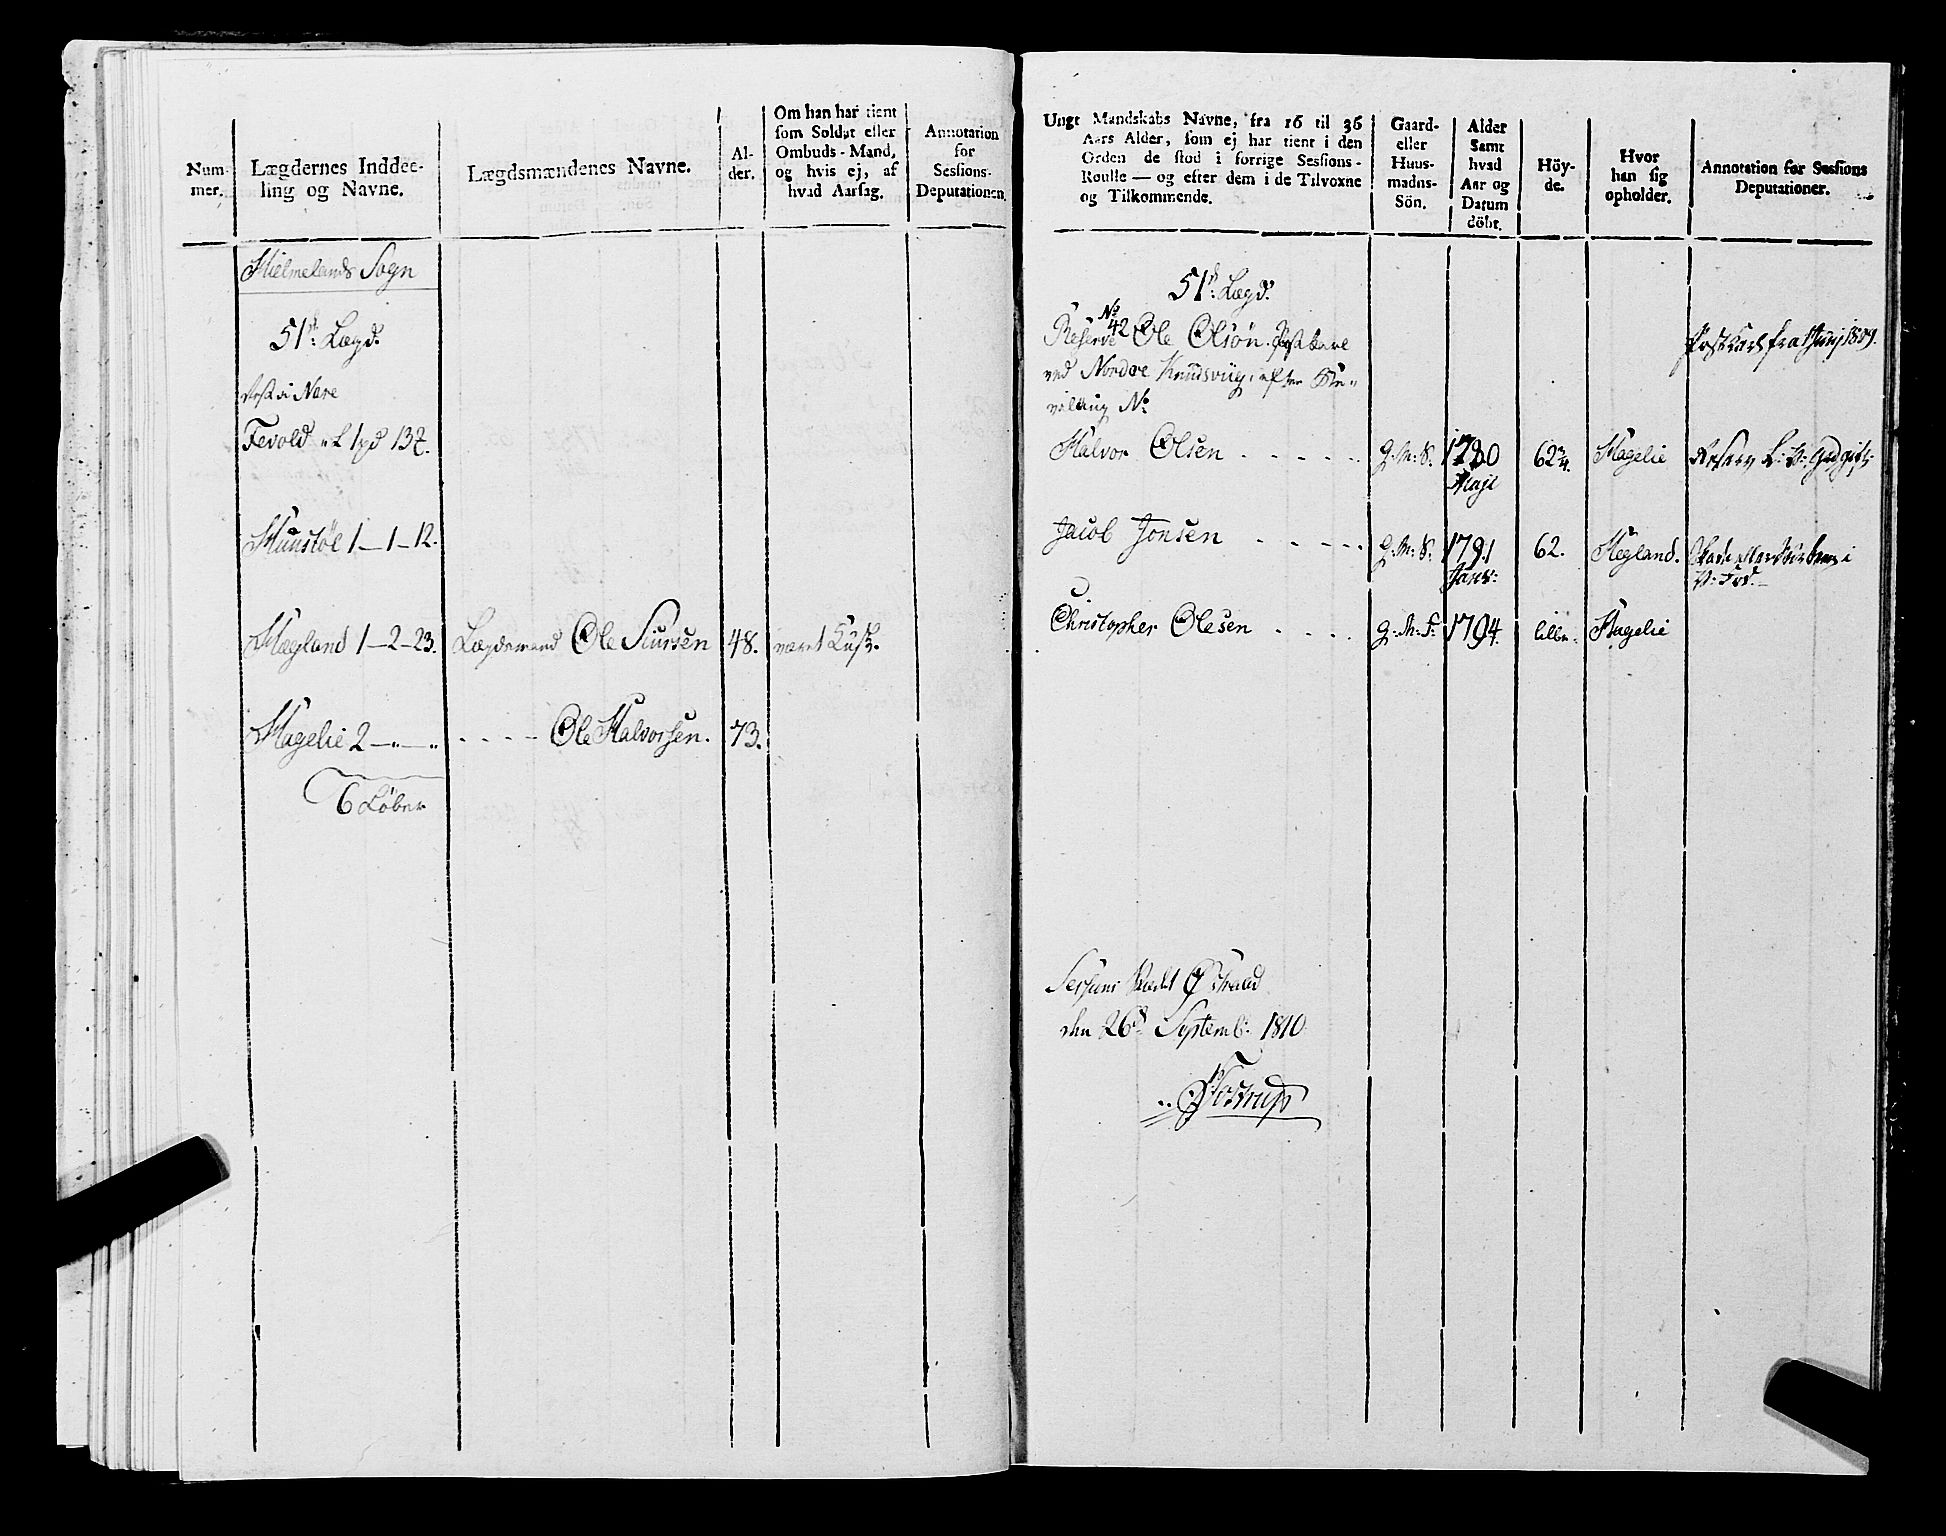 Num-
mer.
Lægdernes Inddee-
ling og Navne.
Lægdsmændenes Navne.
Al-
der.
Om han har tient
som Soldat eller
Ombuds-Mand,
og hvis ej, af
hvad Aarsag.
Annotation
for
Sessions-
Deputationen.
Hielmelands Sogn
51de Lægd.
Fevold
Huustøl 1 — 1 — 12.
Hægland 1 — 2 — 23. Lægdsmand Ole Siursen 48. været
Hagelie 2 — „ — „ - - - - Ole Halvorsen. 73.
6 Løber
Ungt Mandskabs Navne, fra 16 til 36
Aars Alder, som ej har tient i den
Orden de stod i forrige Sessions-
Roulle — og efter dem i de Tilvoxne
og Tilkommende.
Gaard-
eller
Huus-
mands-
Sön.
Alder
Samt
hvad
Aar og
Datum
döbt.
Höy-
de.
Hvor
han sig
opholder.
Annotation for Sessions
Deputationer.
51de Lægd.
No
Reserve 42 Ole Olsøn. Postkarl Postkarl fra Junij 1809.
ved Nordre Knudsviig, efter
No
Halvor Olsen - - - - - G: M: S. 1780 62 3/4. Hagelie
Maji
Jacob Jonsen - - - - - G: M: S. 1791 62. Hegland.
Janr:
Christopher Olesen - - - - G: M: S. 1794. lille. Hagelie
Sessions Øestraad
den 26de Septemb: 1810